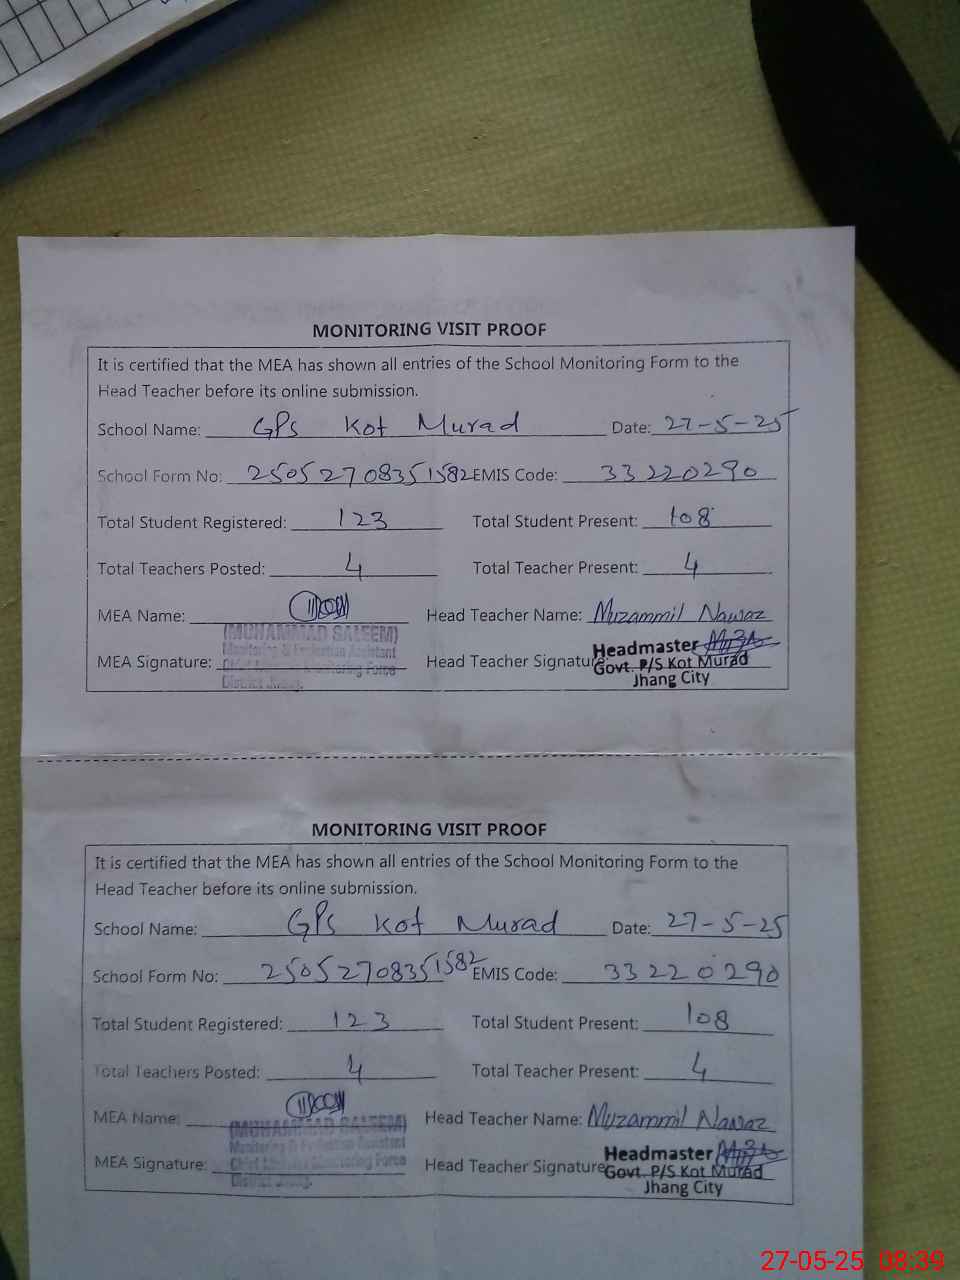 MONITORING VISIT PROOF
It is certified that the MEA has shown all entries of the School Monitoring Form to the
Head Teacher before its online submission.
School Name: GPS Kot Murad Date: 27-5-25
School Form No: 25052708351582 EMIS Code: 33220290
Total Student Registered: 123 Total Student Present: 108
Total Teachers Posted: 4 Total Teacher Present: 4
MEA Name: Head Teacher Name: Muzammil Nawaz
(MUHAMMAD SALEEM)
Monitoring & Evaluation Assistant
MEA Signature: Head Teacher Signature: Headmaster
Chief Minister Monitoring Force Govt. P/S Kot Murad
District Jhang. Jhang City
MONITORING VISIT PROOF
It is certified that the MEA has shown all entries of the School Monitoring Form to the
Head Teacher before its online submission.
School Name: GPS Kot Murad Date: 27-5-25
School Form No: 25052708351582 EMIS Code: 33220290
Total Student Registered: 123 Total Student Present: 108
Total Teachers Posted: 4 Total Teacher Present: 4
MEA Name: Head Teacher Name: Muzammil Nawaz
(MUHAMMAD SALEEM)
Monitoring & Evaluation Assistant
MEA Signature: Head Teacher Signature Headmaster
Chief Minister Monitoring Force Govt. P/S Kot Murad
District Jhang. Jhang City
27-05-25 08:39